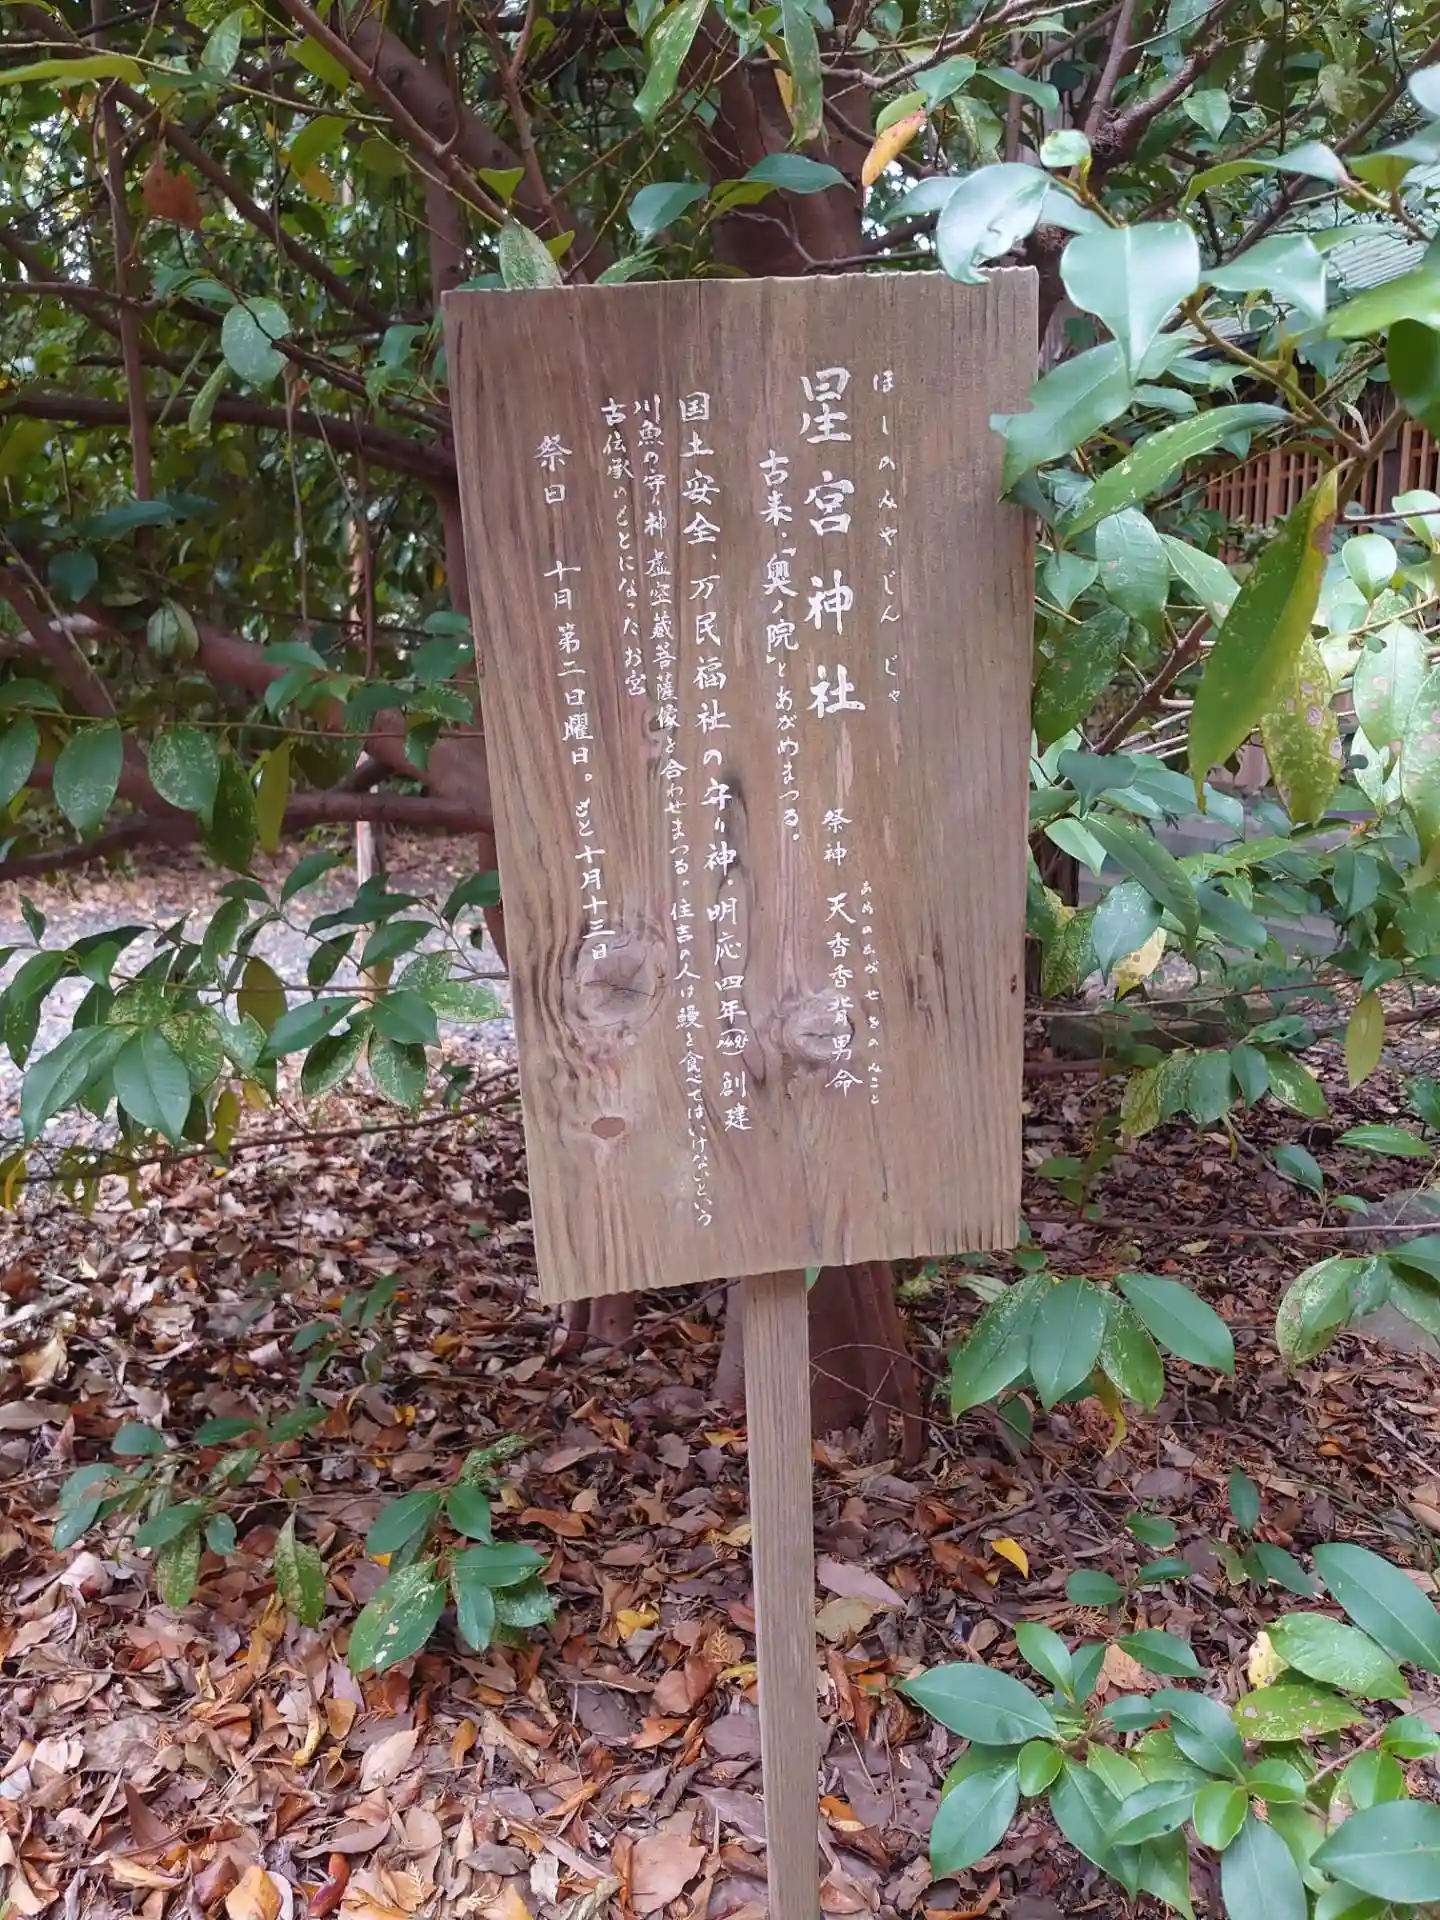 ほしのみやじんじゃ
星宮神社
祭神 天香香背男命
あめのかがせをのみこと
古来、「奥ノ院」とあがめまつる。
国土安全、万民福社の守り神。明応四年(一四九五)創建
川魚の守り神虚空蔵菩薩像を合わせまつる。住吉の人は鰻を食べてはいけないという
古伝承のもとになったお宮
祭日 十月第二日曜日。もと十月十三日